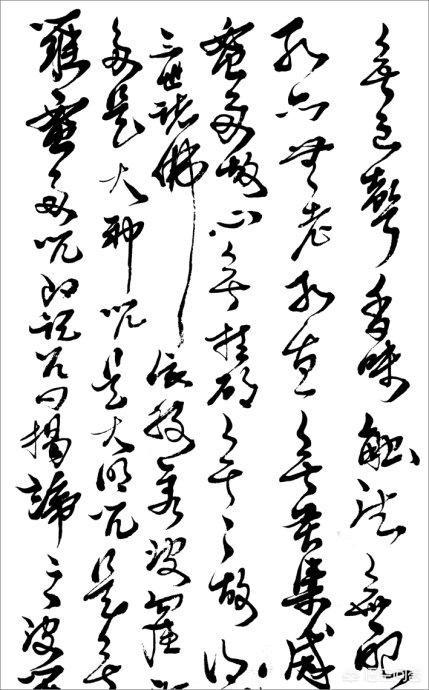 無色聲香味觸法無眼
死亦無老死盡無苦集滅
蜜多故心無挂礙無〻〻故
三世諸佛依般若波羅
多是大神咒是大明咒是無
羅蜜多咒即說咒曰揭諦〻波羅